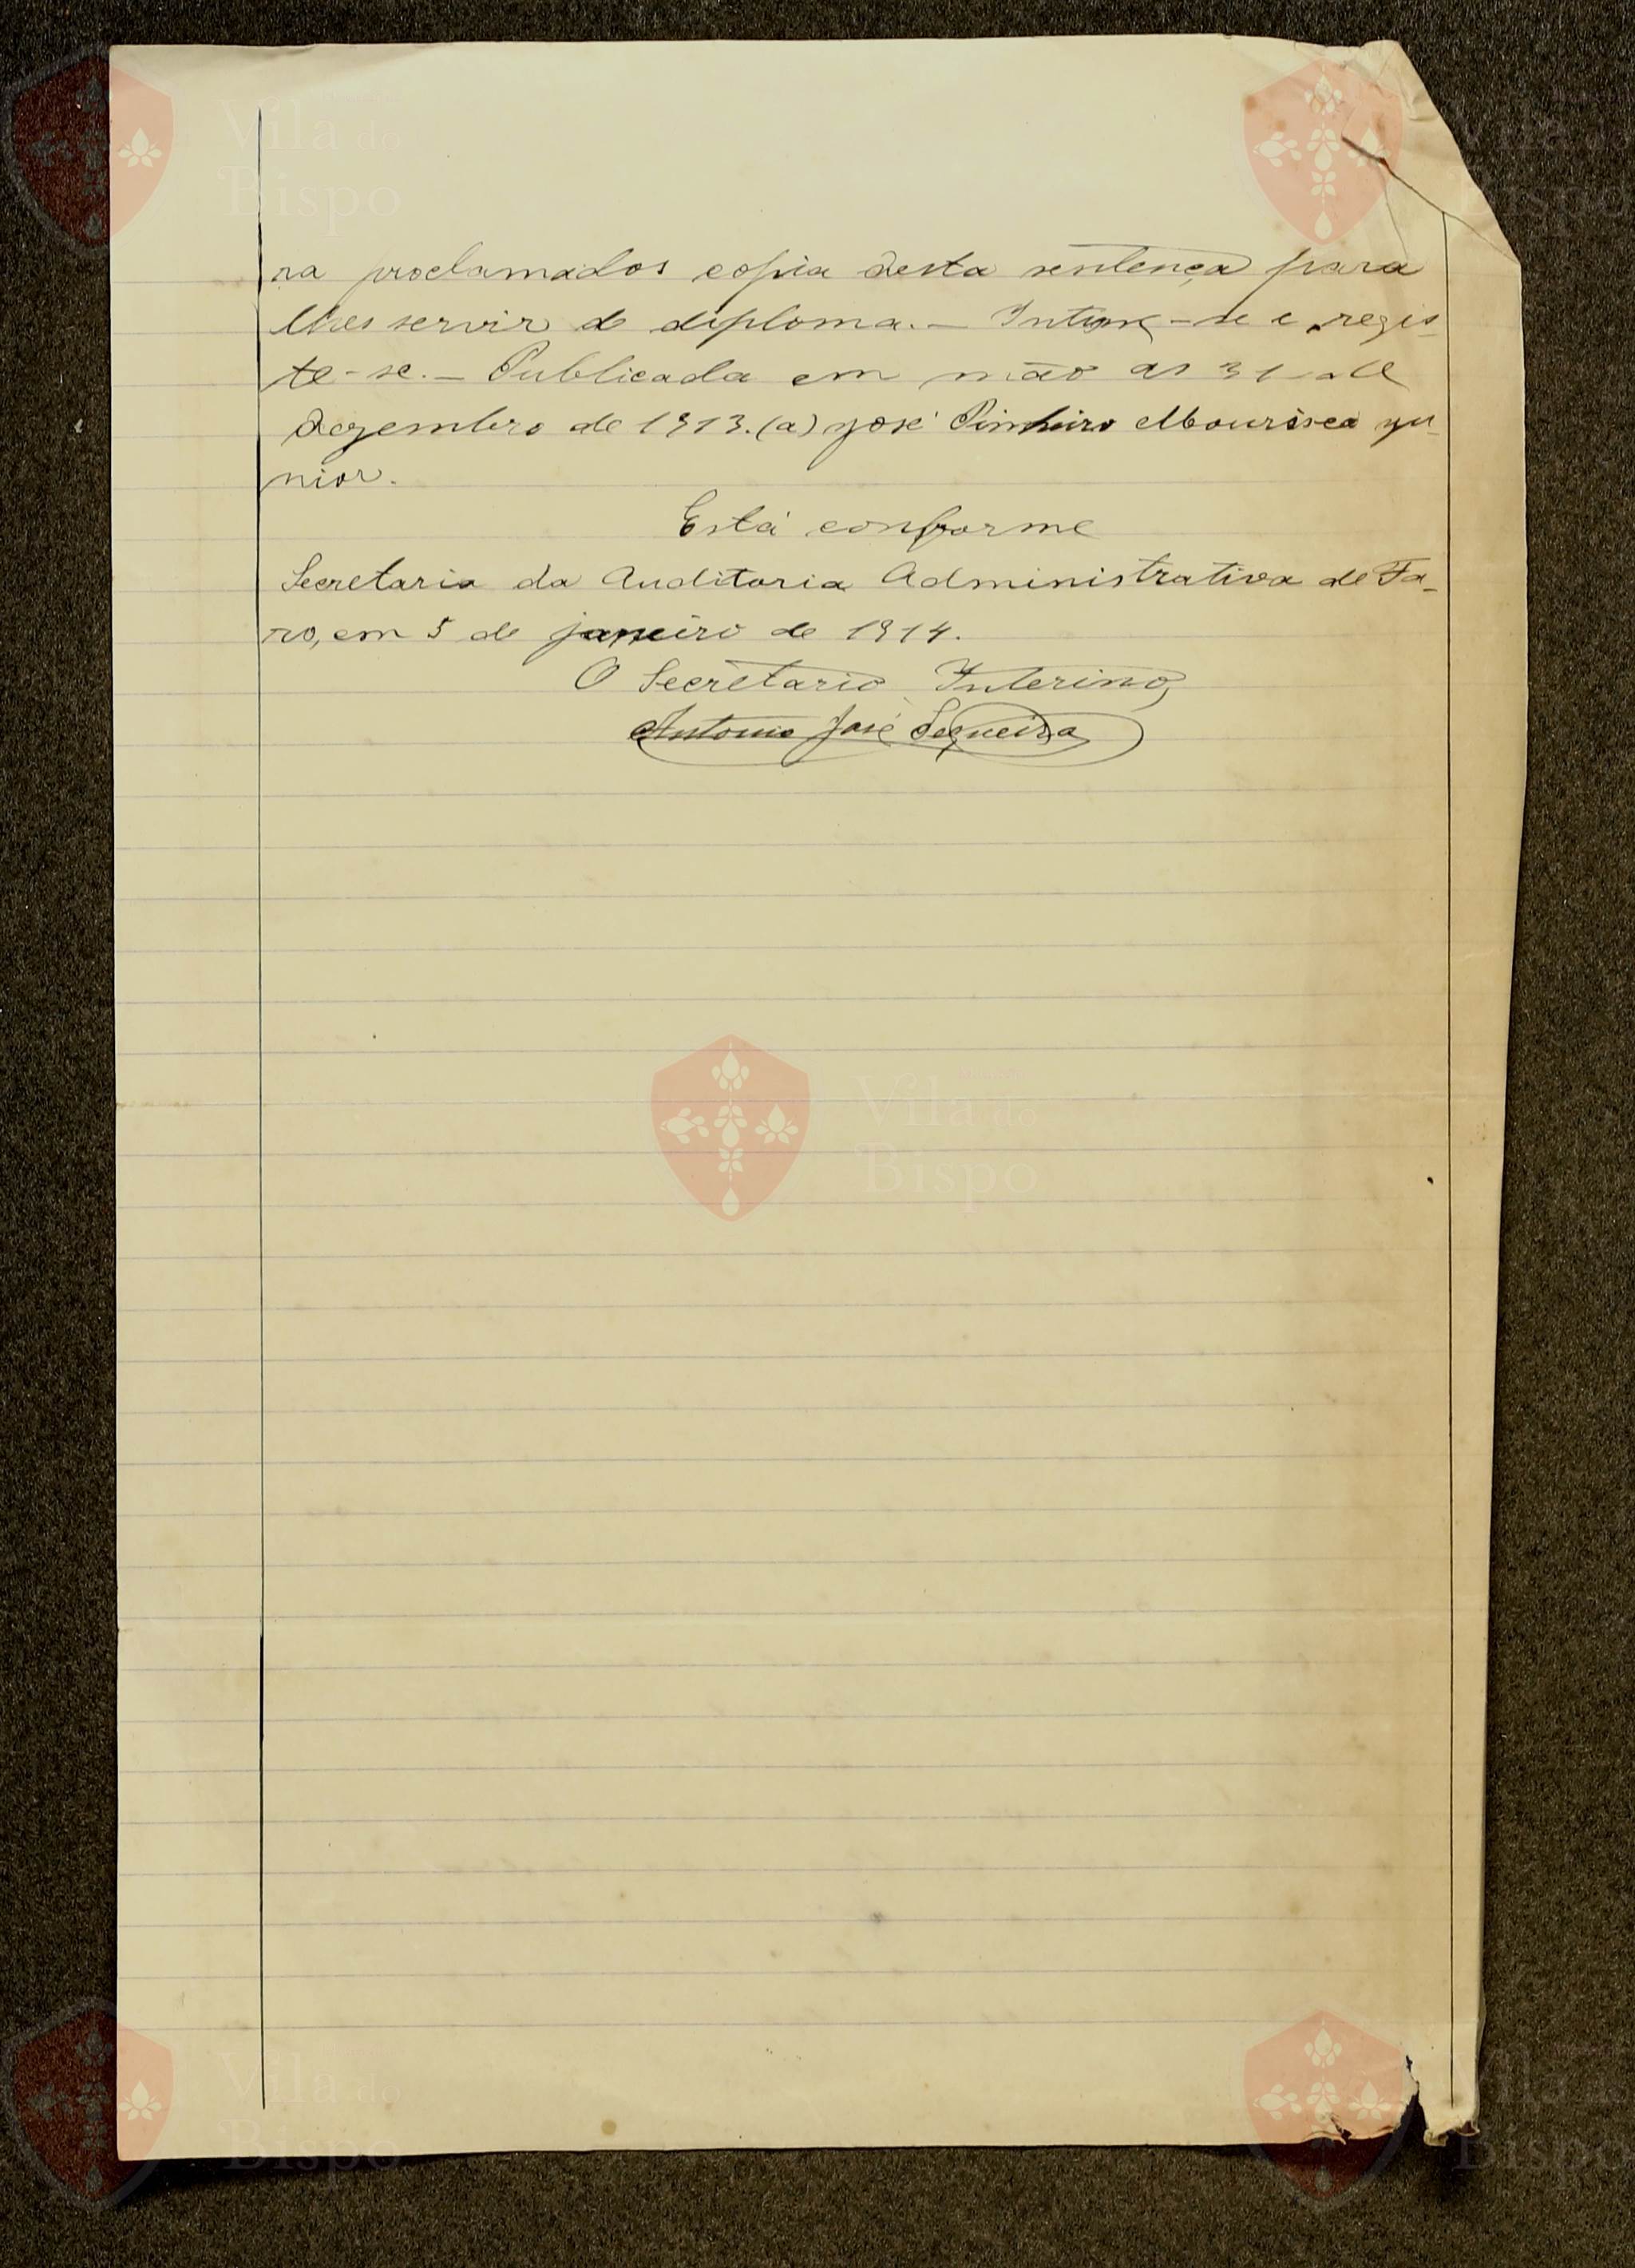 ra proclamados copia desta sentença para
lhes servir de diploma. — Intime-se e regis-
te-se. — Publicada em mão as 31 de
Dezembro de 1913. (a) José Pinheiro Mourisca Ju-
nior.
Está conforme
Secretaria da Auditoria Administrativa de Fa-
ro, em 5 de janeiro de 1914.
O Secretario Interino,
Antonio José Sequeira
Vila do
Bispo
Vila do
Bispo
Vila do
Bispo
Vila do
Bispo
Vila do
Bispo